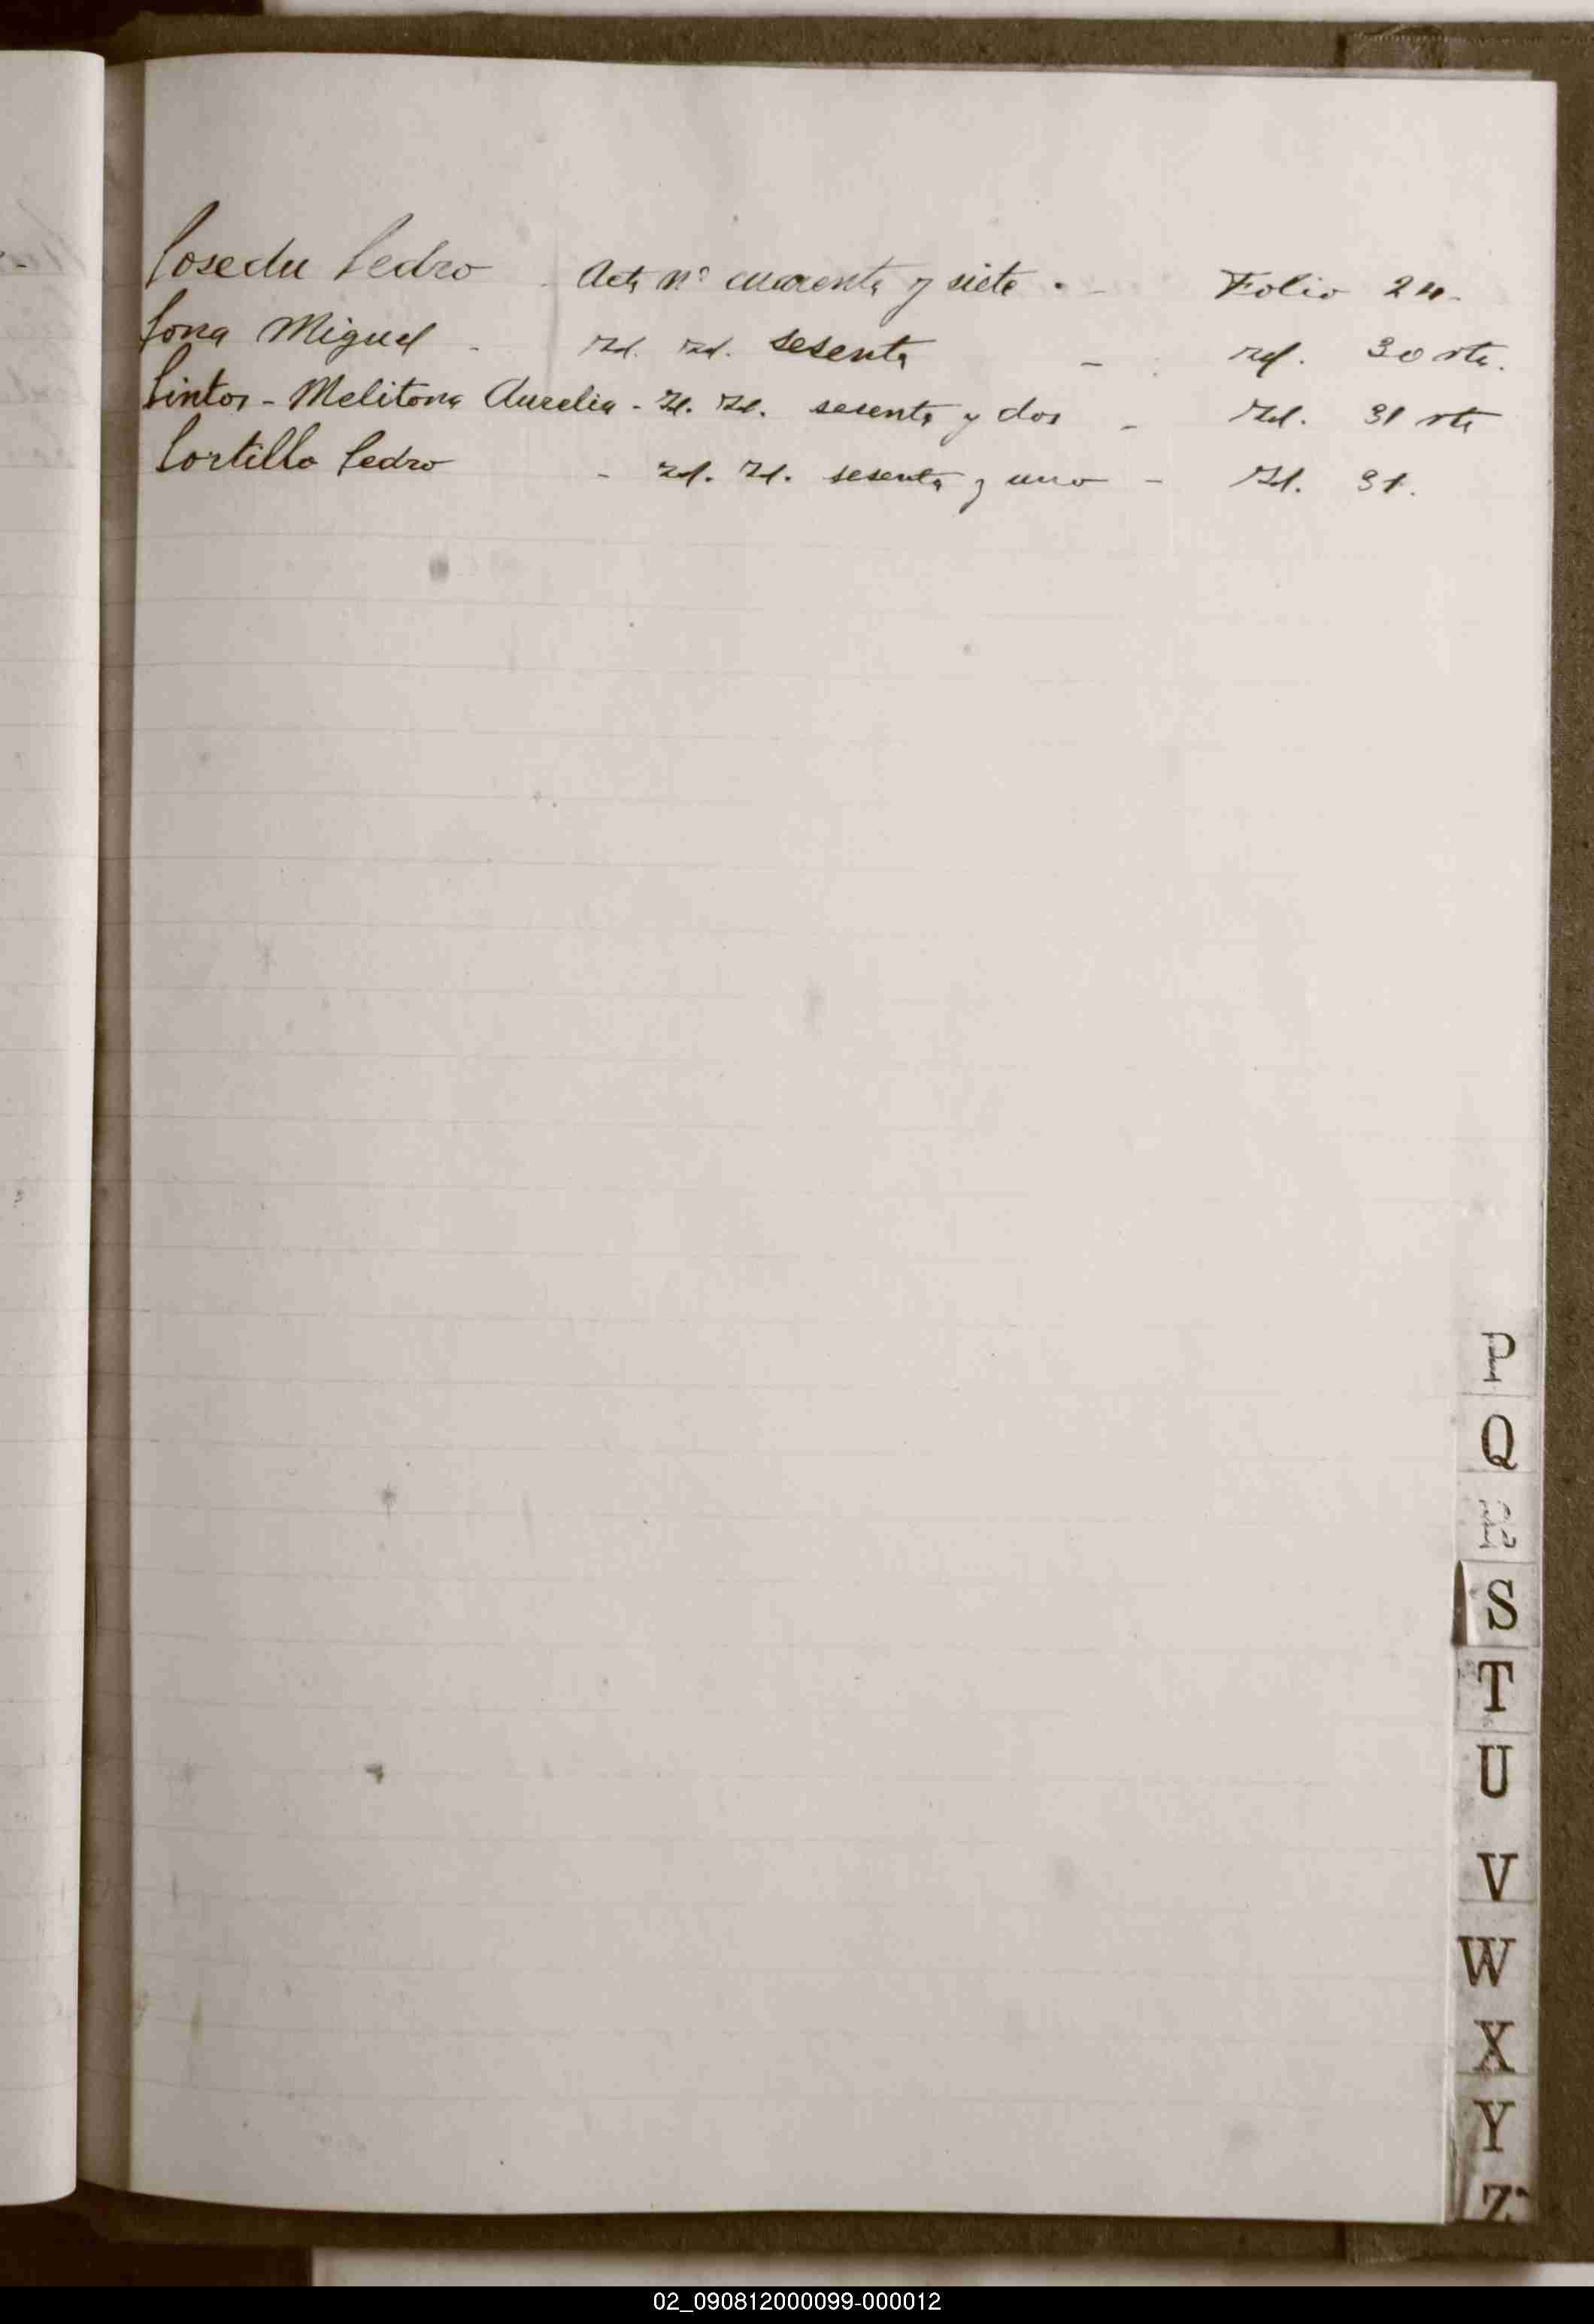 Posedu Pedro - Acta nº cuarenta y siete. - Folio 24.
Pona Miguel - Id. Id. sesenta - Id. 30 vta.
Pintos - Melitona Aurelia - Id. Id. sesenta y dos - Id. 31 vta
Portillo Pedro - Id. Id. sesenta y uno - Id. 31.
P
Q
S
T
U
V
W
X
Y
Z
02_090812000099-000012